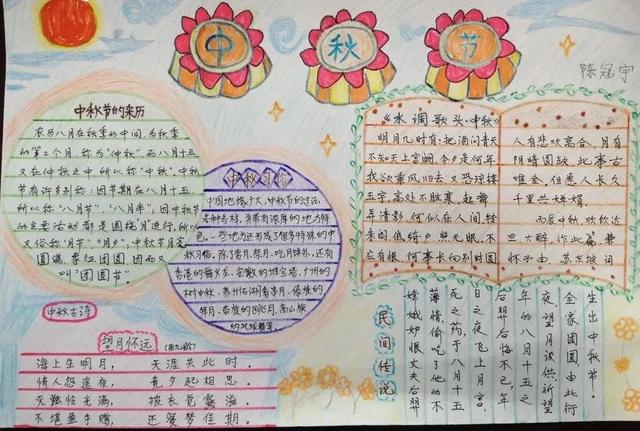 中秋节
陈冠宇
中秋节的来历
农历八月在秋季的中间,为秋季
的第二个月,称为“仲秋”,而八月十五
又在仲秋之中,所以称“中秋”。中秋
节有许多别称:因节期在八月十五,
所以称“八月节”、“八月半”;因中秋节
的主要活动都是围绕月进行,所以
又俗称“月节”、“月夕”;中秋节月亮
圆满,象征团圆,因而又
叫“团圆节”。
中秋习俗
中国地缘广大,中秋节的习俗,
各种各样,并带有浓厚的地方特
色。一些地方还形成了很多特殊的中
秋习俗。除了赏月、祭月、吃月饼外,还有
香港的舞火龙、安徽的堆宝塔、广州的
树中秋、苏州石湖看串月、傣族的
拜月、苗族的跳月、高山族
的托球舞等
《水调歌头·中秋》
明月几时有,把酒问青天
不知天上宫阙,今夕是何年
我欲乘风归去,又恐琼楼
玉宇,高处不胜寒,起舞
弄清影,何似在人间,转
朱阁,低绮户,照无眠,不
应有恨,何事长向别时圆
人有悲欢离合,月有
阴晴圆缺,此事古
难全,但愿人长久
千里共婵娟。
丙辰中秋,欢饮达
旦,大醉,作此篇,兼
怀子由,苏东坡词
中秋古诗
望月怀远
海上生明月, 天涯共此时。
情人怨遥夜, 竟夕起相思。
灭烛怜光满, 披衣觉露滋。
不堪盈手赠, 还寝梦佳期。
民间传说
生出中秋节。
全家团圆,由此衍
夜望月读供祈望
年的八月十五之
后羿后悔不已,年
日之夜飞上月宫,
死之药,于八月十五
薄情,偷吃了他的不
嫦娥妒恨丈夫后羿